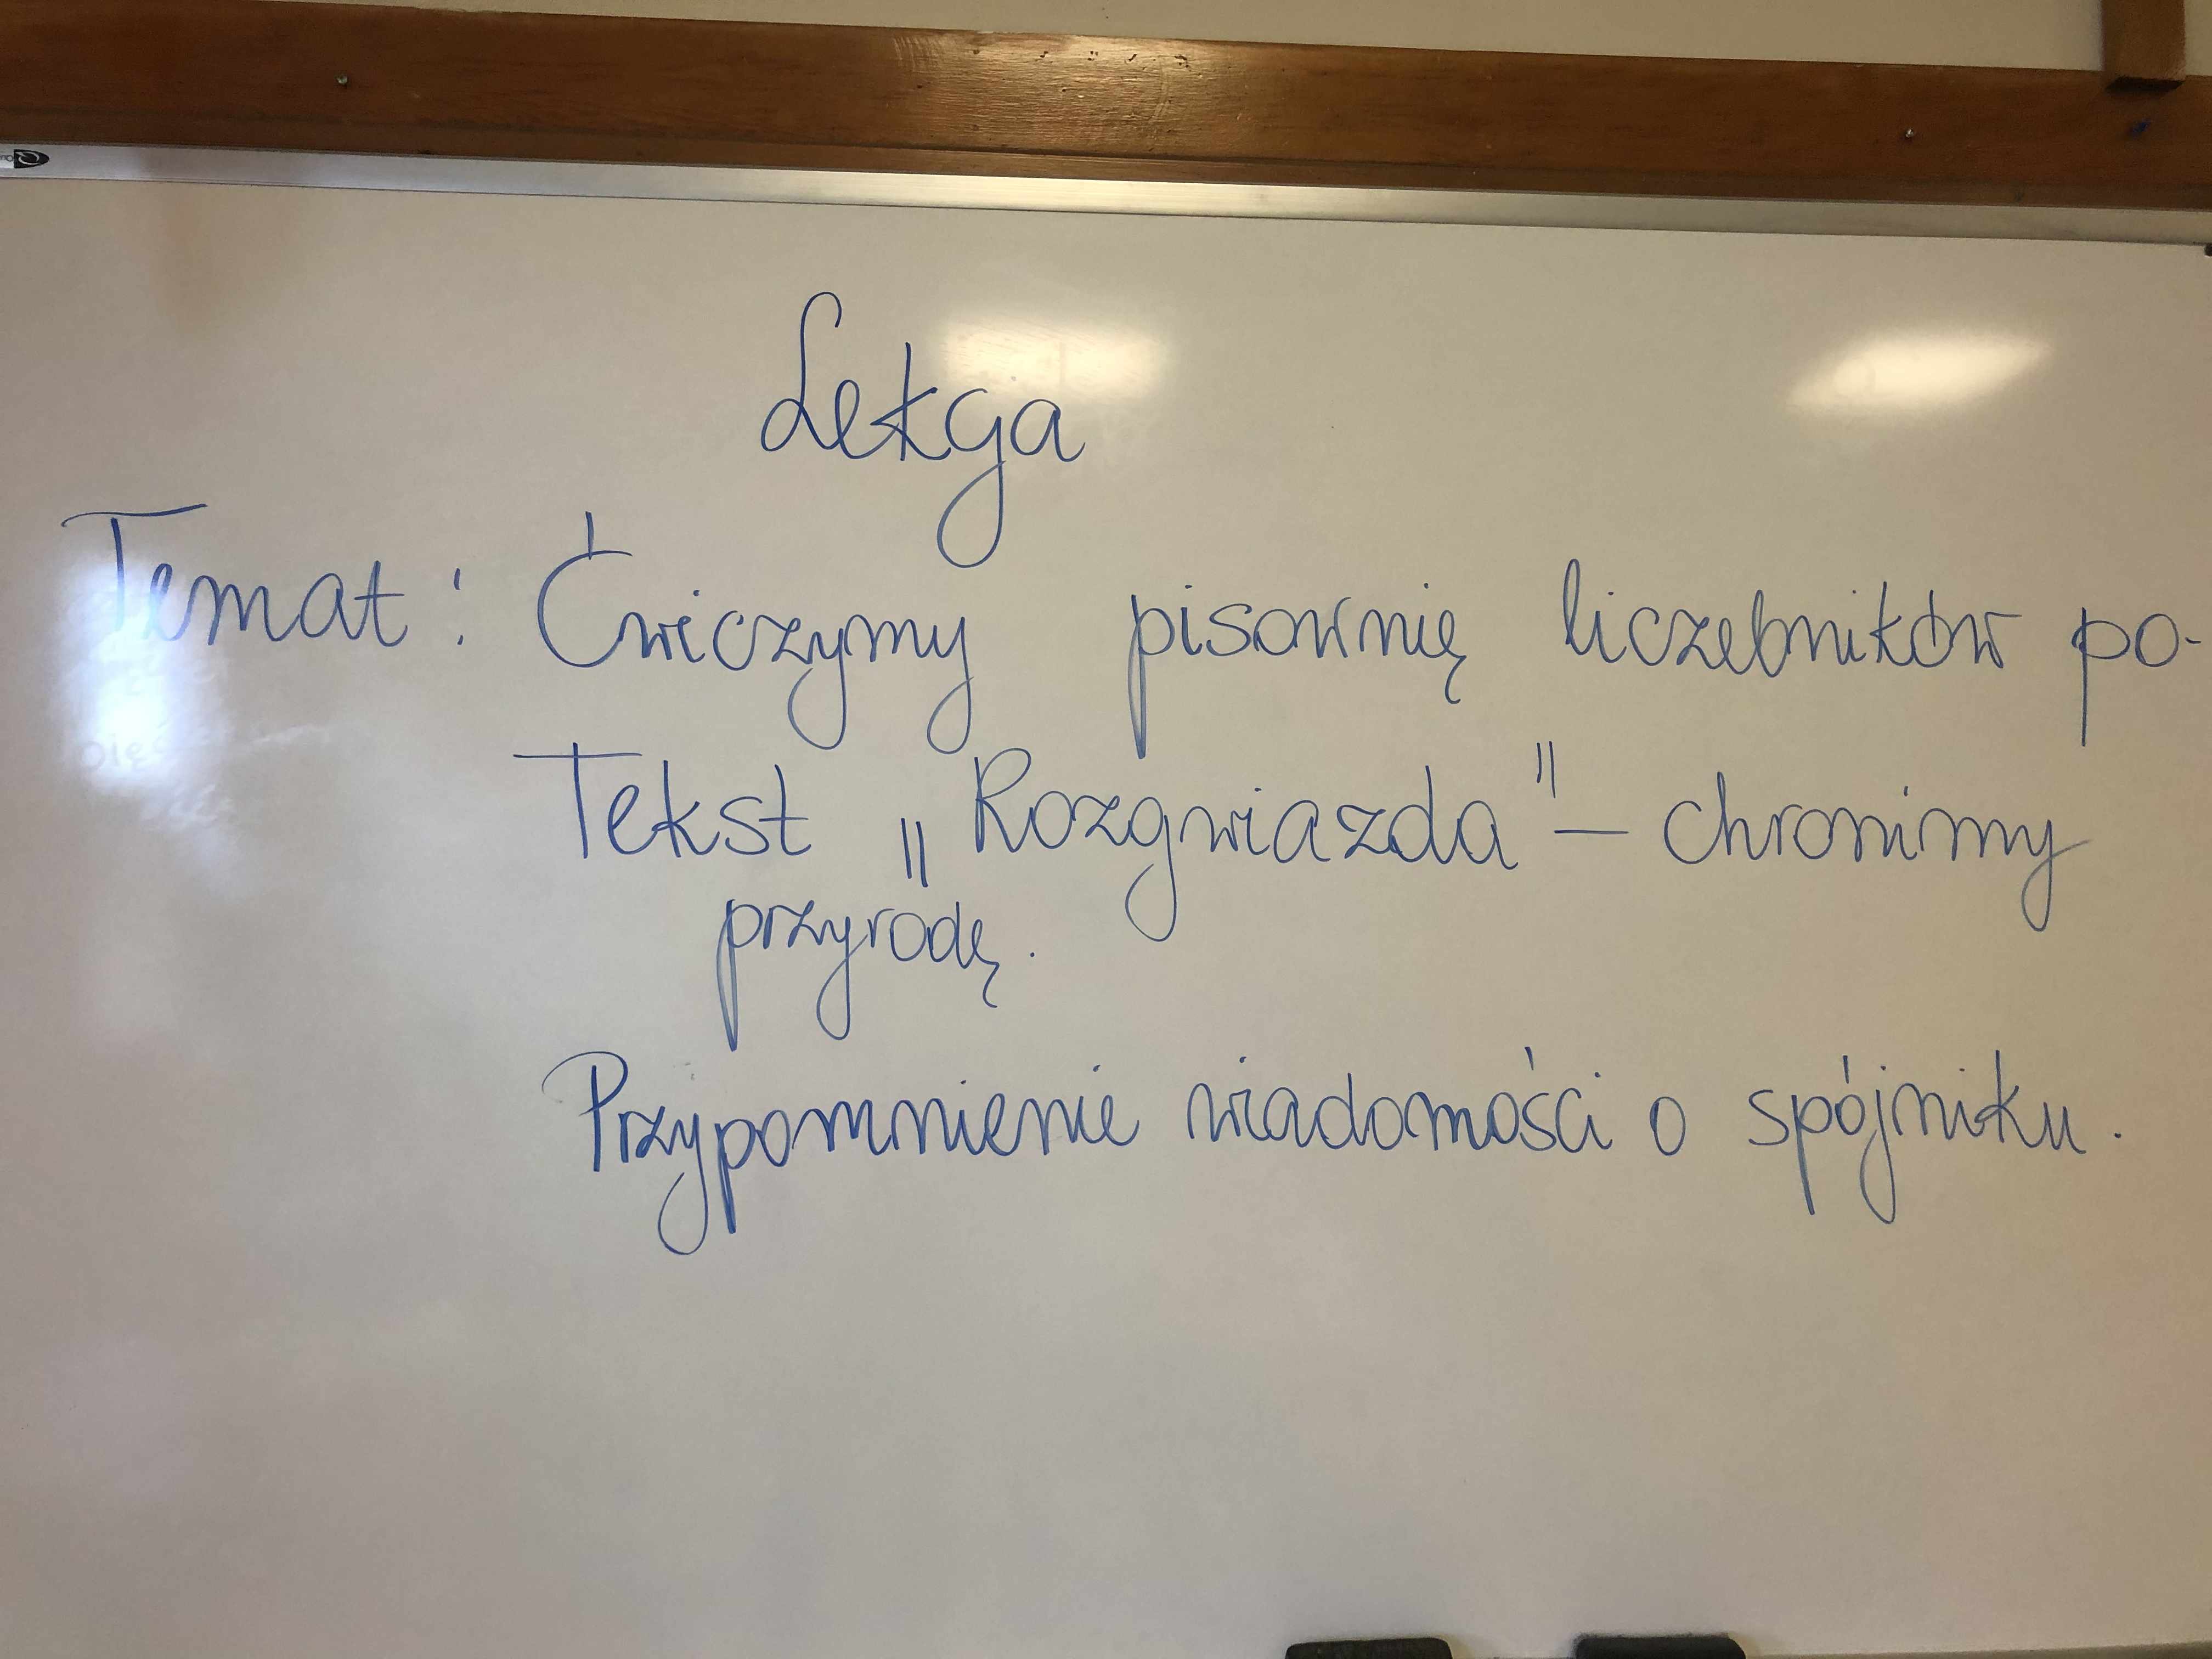 Lekcja
Temat: Ćwiczymy pisownię liczebników po-
Tekst „Rozgwiazda" – chronimy
przyrodę.
Przypomnienie wiadomości o spójniku.